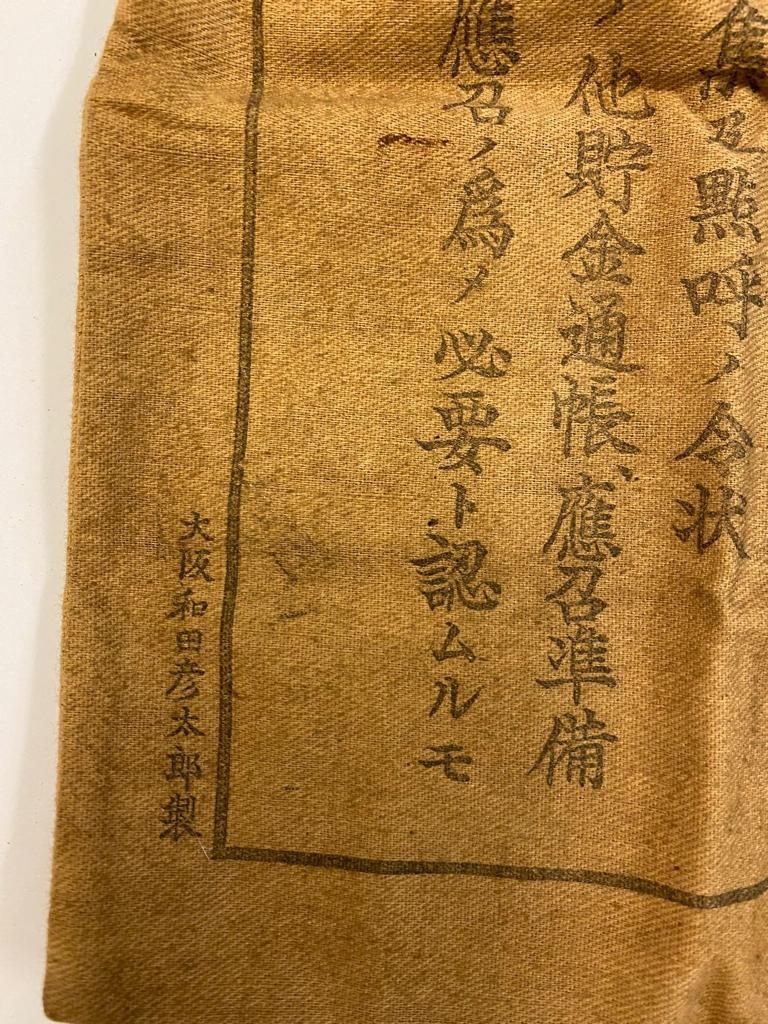 集及點呼ノ令状
ノ他貯金通帳、應召準備
應召ノ爲メ必要ト認ムルモ
大阪和田彦太郎製